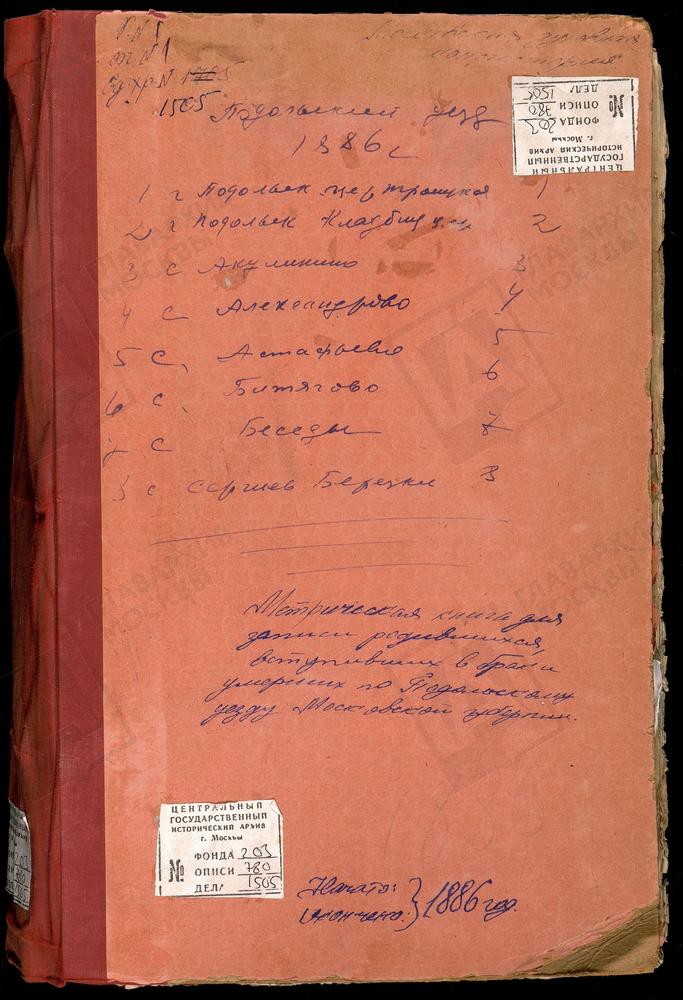 оп. №1
Ед. хр. №
1505
Подольский уезд
1886 г
1 г Подольск цер Троицкая 1
2 г Подольск Кладбищ цер 2
3 с Акулинино 3
4 с Александрово 4
5 с. Астафьево 5
6 с. Битягово 6
7 с Беседы 7
8 с Сергиев Березки 8
Метрическая книга для
записи родившихся,
вступивших в брак и
умерших по Подольскому
уезду Московской губернии.
ЦЕНТРАЛЬНЫЙ
ГОСУДАРСТВЕННЫЙ
ИСТОРИЧЕСКИЙ АРХИВ
г. Москвы
№
ФОНДА 203
ОПИСИ 780
ДЕЛА 1505
ЦЕНТРАЛЬНЫЙ
ГОСУДАРСТВЕННЫЙ
ИСТОРИЧЕСКИЙ АРХИВ
г. Москвы
№
ФОНДА 203
ОПИСИ 780
ДЕЛА 1505
Начато:
Окончено: } 1886 год.
ГЛАВАРХИВ
МОСКВЫ